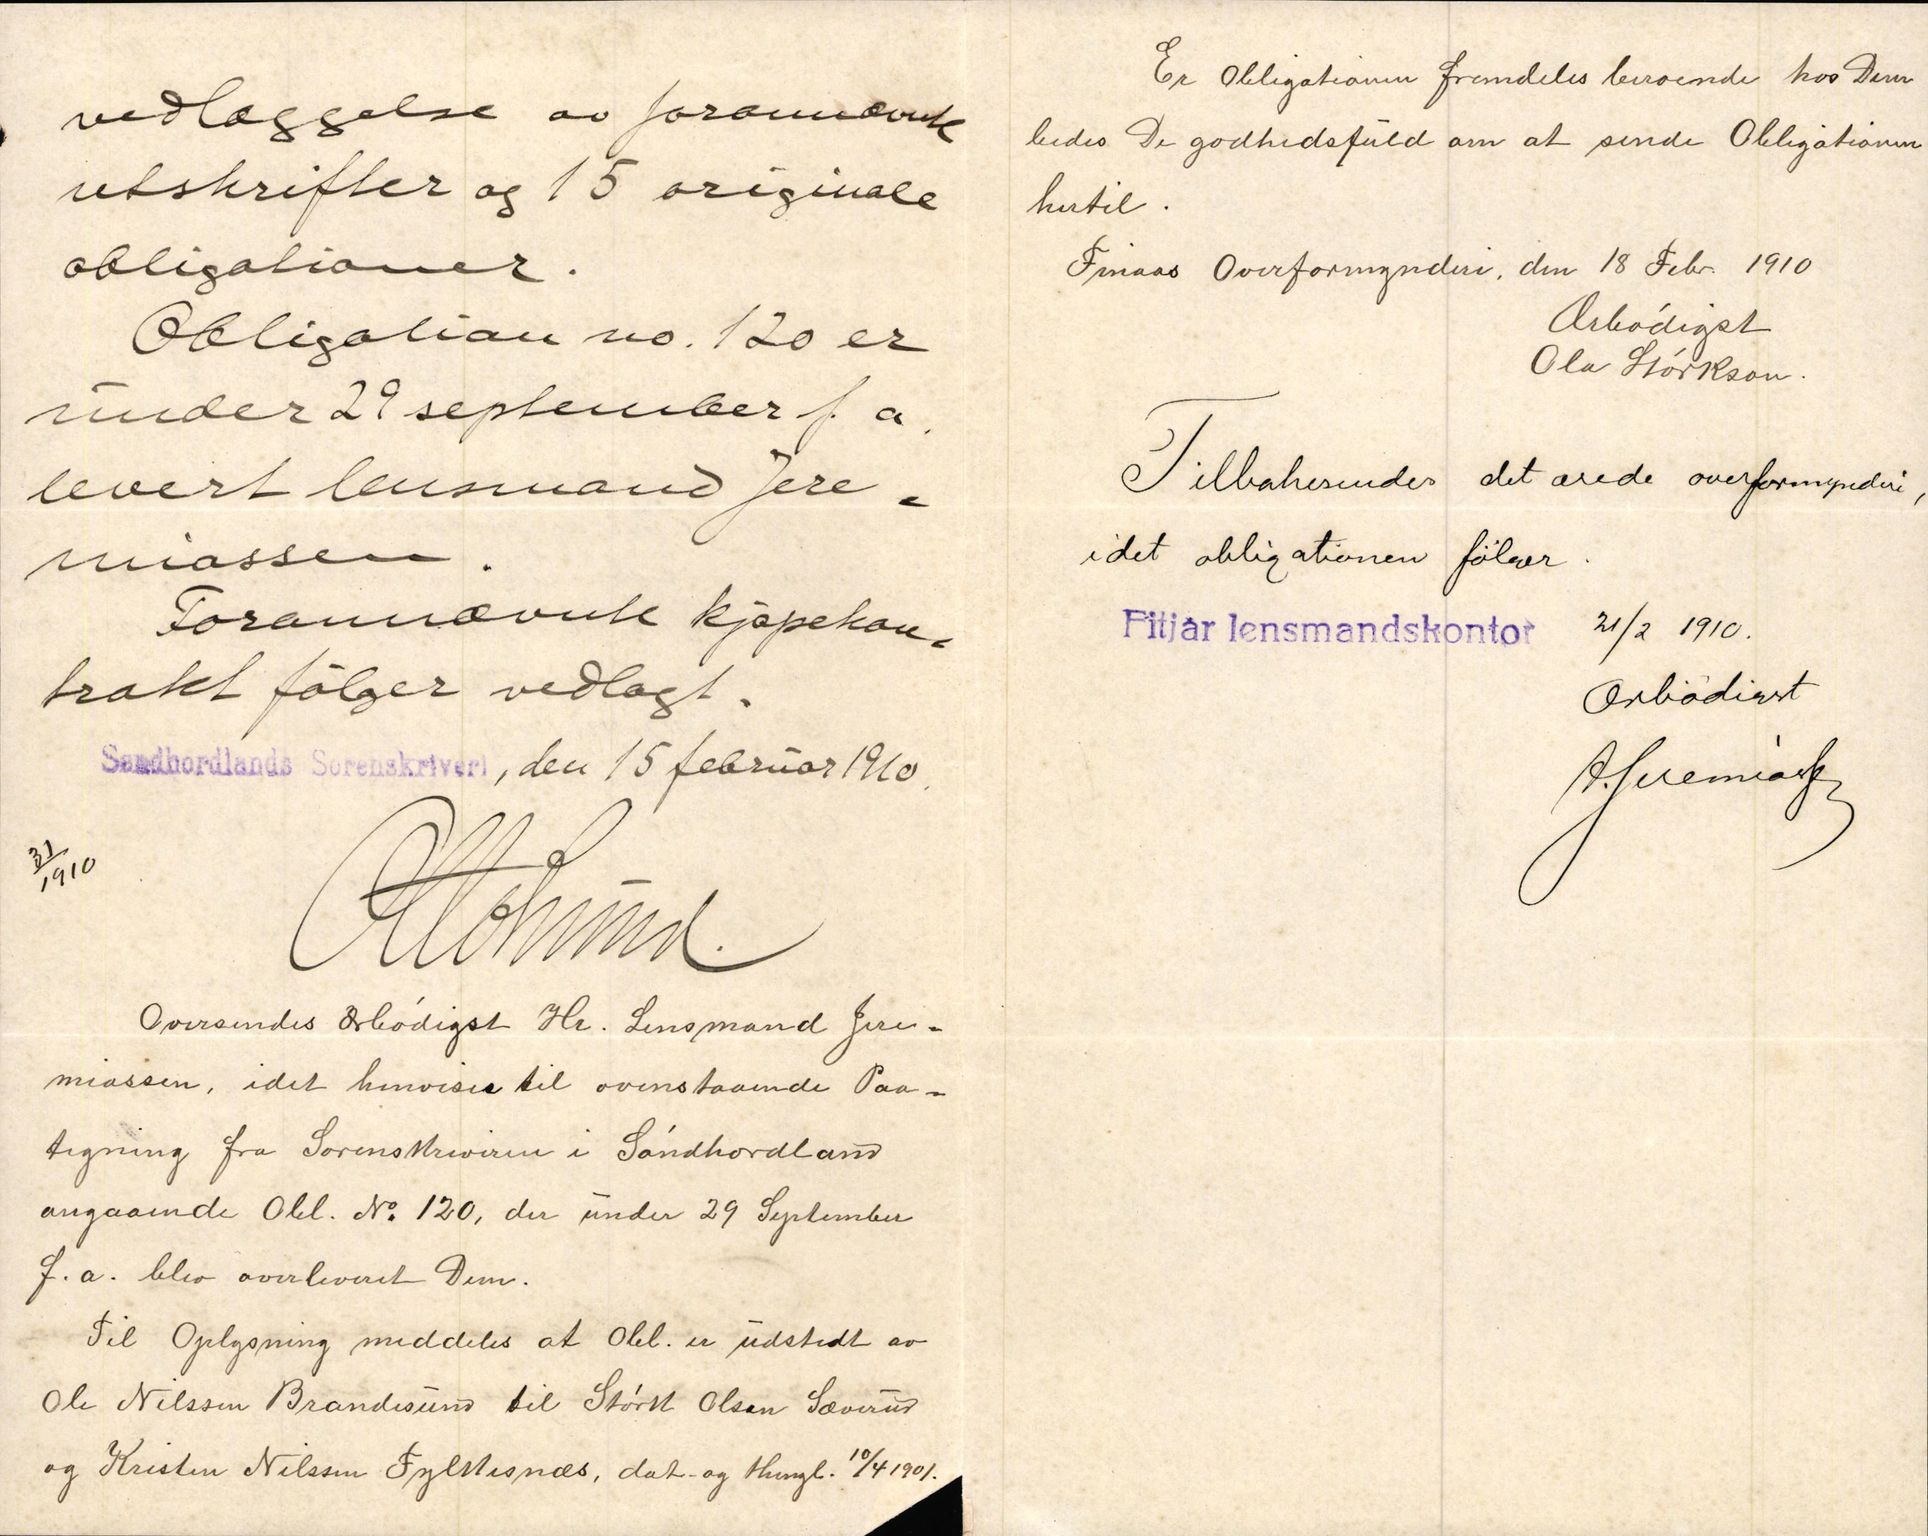 vedlæggelse av forannævnte
utskrifter og 15 originale
obligationer.
Obligation no. 120 er
under 29 september f. a.
levert lensmand Jere-
miassen.
Forannævnte kjøpekon-
trakt følger vedlagt.
Søndhordlands Sorenskriveri, den 15 februar 1910.
31/1910
Oversendes ærbödigst Hr. Lensmand Jere-
miassen, idet henvises til ovenstaaende Paa-
tegning fra Sorenskriveren i Söndhordland
angaaende Obl. No. 120, der under 29 September
f. a. blev overleveret Dem.
Til Oplysning meddeles at Obl. er udstedt av
Ole Nilssen Brandesund til Störk Olsen Sæverud
og Kristen Nilssen Fylkesnæs, dat- og thingl. 10/4 1901.
Er Obligationen fremdeles beroende hos Dem
bedes De godhedsfuld om at sende Obligationen
hertil.
Finaas Overformynderi, den 18 Febr. 1910
Ærbödigst
Ola Störkson.
Tilbakesendes det ærede overformynderi,
idet obligationen fölger.
Fitjar lensmandskontor 21/2 1910.
Ærbödigst
A. Jeremiass